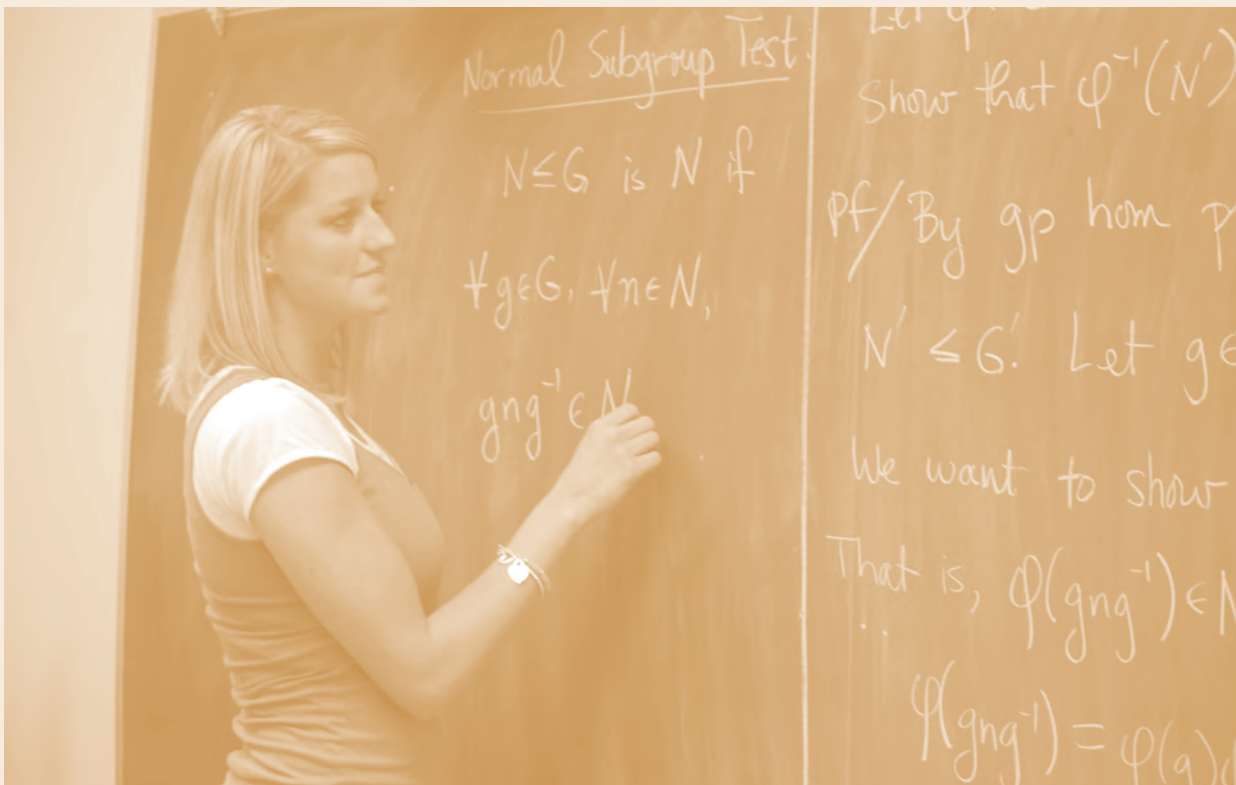 Normal Subgroup Test.
N≤G is N if
∀g∈G, ∀n∈N,
gng⁻¹∈N
Let φ
Show that φ⁻¹(N')
Pf/By gp hom
N' ≤ G'. Let g∈
We want to show
That is, φ(gng⁻¹)∈N
φ(gng⁻¹) = φ(g)